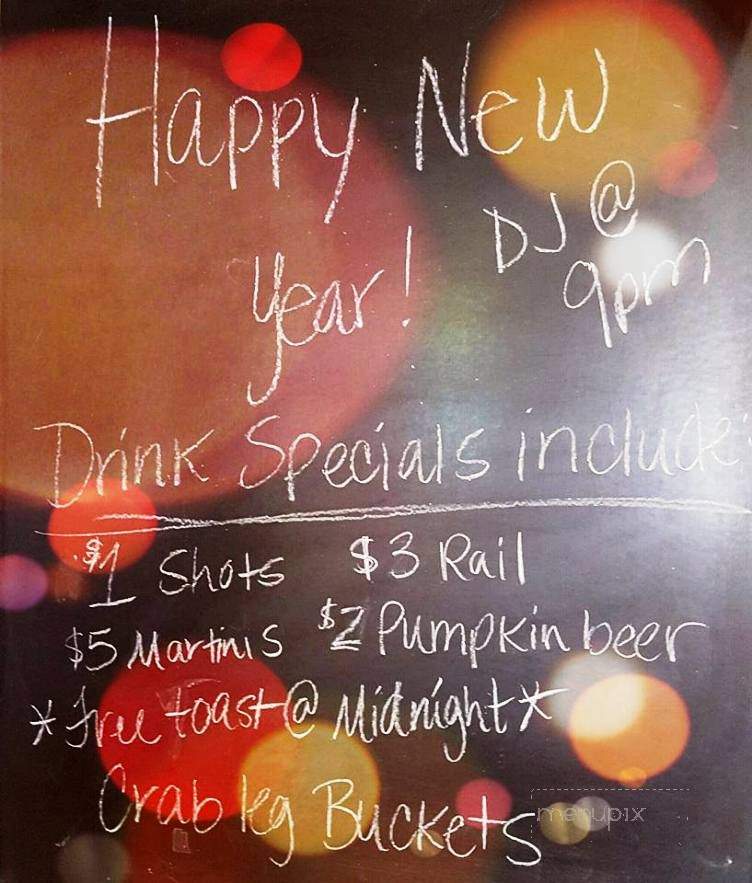 Happy New
Year!
DJ @
9pm
Drink Specials include:
$1 Shots $3 Rail
$5 Martinis $2 Pumpkin beer
*Free toast @ Midnight*
Crab leg Buckets
menupix